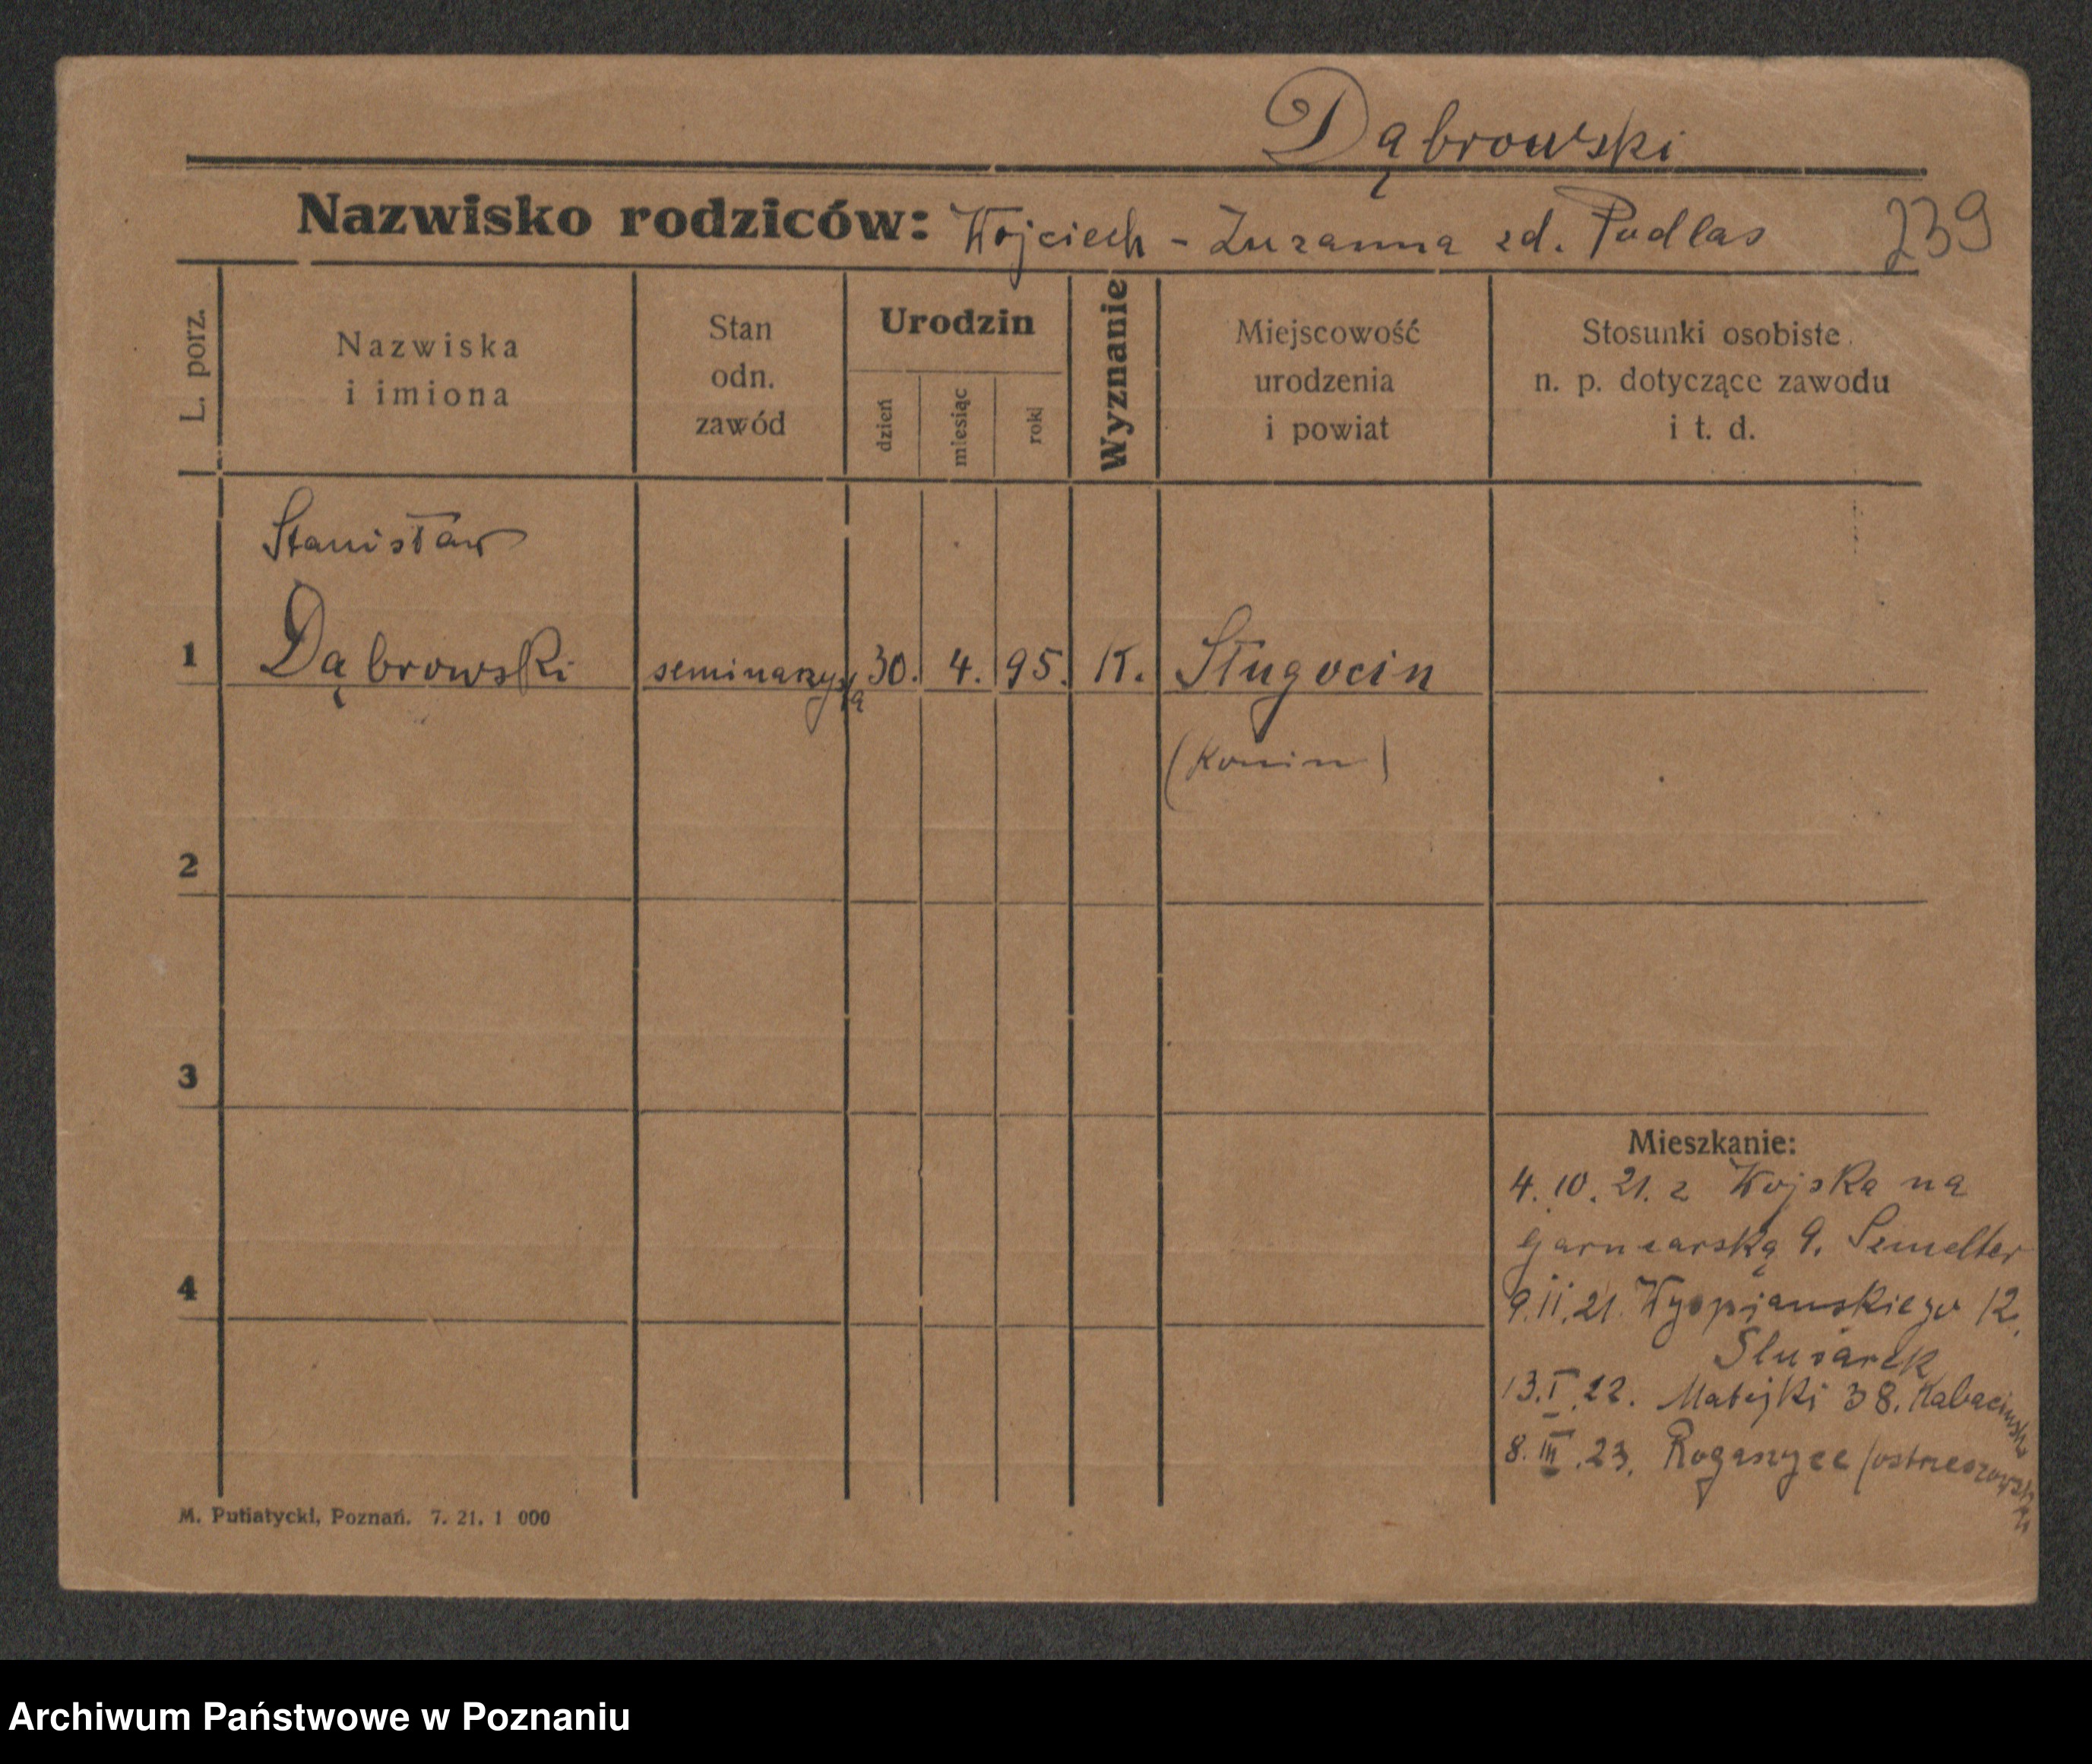 Dąbrowski
Nazwisko rodziców: Wojciech - Zuzanna zd. Podlas 239
L. porz.
Nazwiska
i imiona
Stan
odn.
zawód
Urodzin
dzień
miesiąc
rok
Wyznanie
Miejscowość
urodzenia
i powiat
Stosunki osobiste
n. p. dotyczące zawodu
i t. d.
Stanisław
1 Dąbrowski seminarzysta 30. 4. 95. K. Sługocin
(Konin)
2
3
4
Mieszkanie:
4. 10. 21. z Wojska na
Garncarską 9. Szmelter
9. 11. 21. Wyspiańskiego 12.
Slusarek
13. I. 22. Matejki 38. Kabacinska
8. III. 23. Rogaszyce /ostrzeszowski
M. Putiatycki, Poznań. 7. 21. 1 000
Archiwum Państwowe w Poznaniu